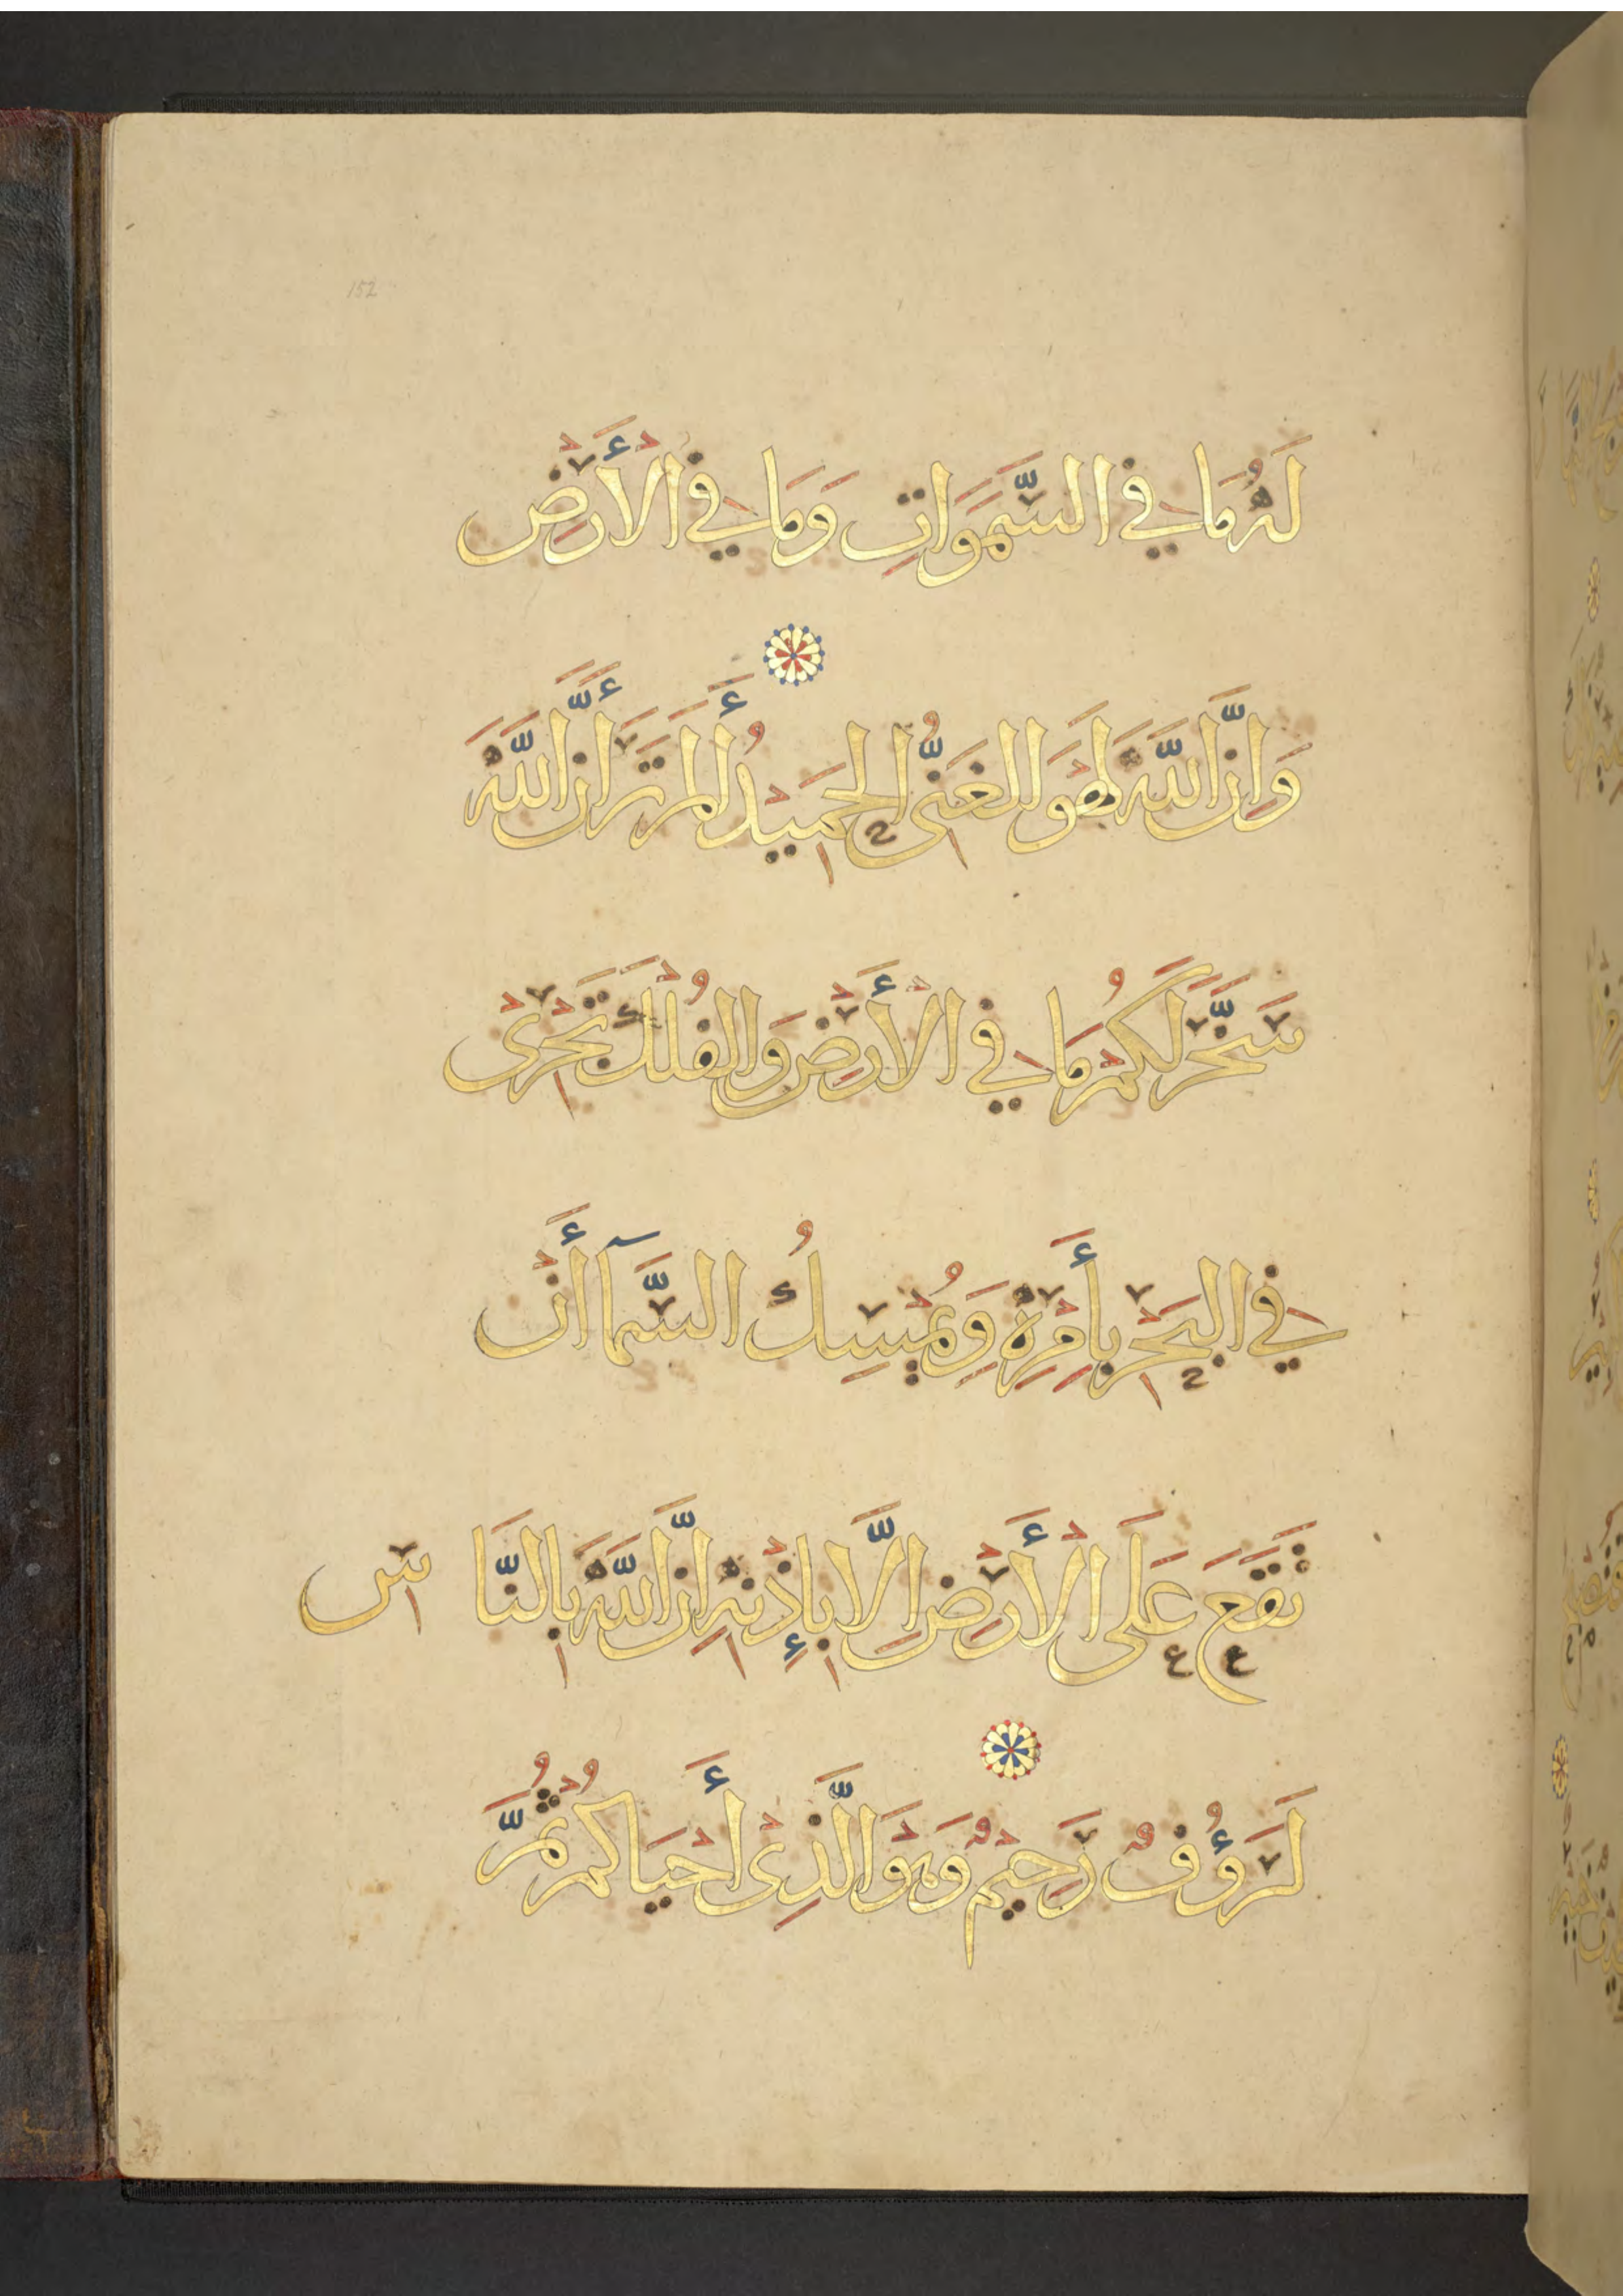 152
لَهُ مَا فِي السَّمَوَاتِ وَمَا فِي الْأَرْضِ
وَإِنَّ اللَّهَ لَهُوَ الْغَنِيُّ الْحَمِيدُ أَلَمْ تَرَ أَنَّ اللَّهَ
سَخَّرَ لَكُمْ مَا فِي الْأَرْضِ وَالْفُلْكَ تَجْرِى
فِي الْبَحْرِ بِأَمْرِهِ وَيُمْسِكُ السَّمَآ أَنْ
تَقَعَ عَلَى الْأَرْضِ إِلَّا بِإِذْنِهِ إِنَّ اللَّهَ بِالنَّاسِ
لَرَؤُفٌ رَحِيْمٌ وَهْوَ الَّذِىْ أَحْيَاكُمْ ثُمَّ